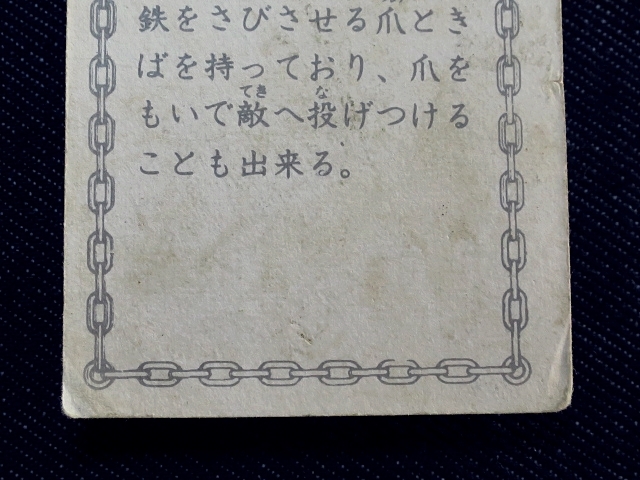 鉄をさびさせる爪とき
ばを持っており、爪を
もいで敵へ投げつける
ことも出来る。